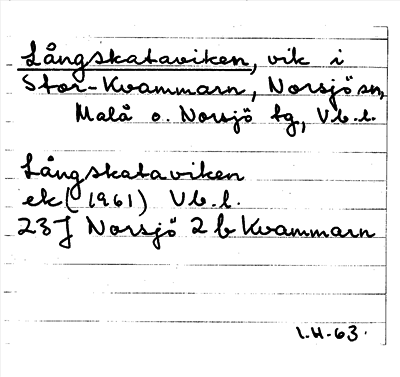 Långskataviken, vik i
Stor-Kvammarn, Norsjö sn,
Malå o. Norsjö tg, Vb.l.
Långskataviken
ek (1961) Vb.l.
23J Norsjö 2b Kvammarn
I.H-63.